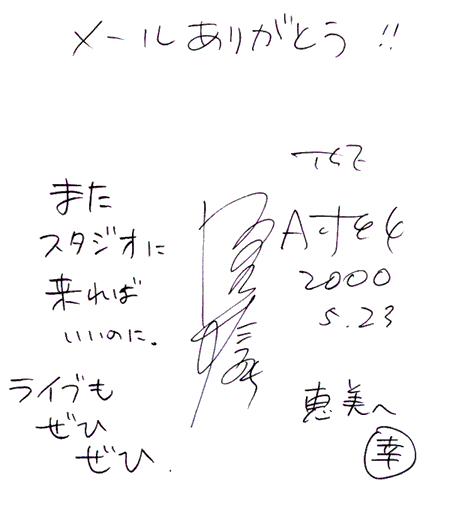 メールありがとう!!
また
スタジオに
来れば
いいのに。
ライブも
ぜひ
ぜひ.
2000
5.23
恵美へ
幸